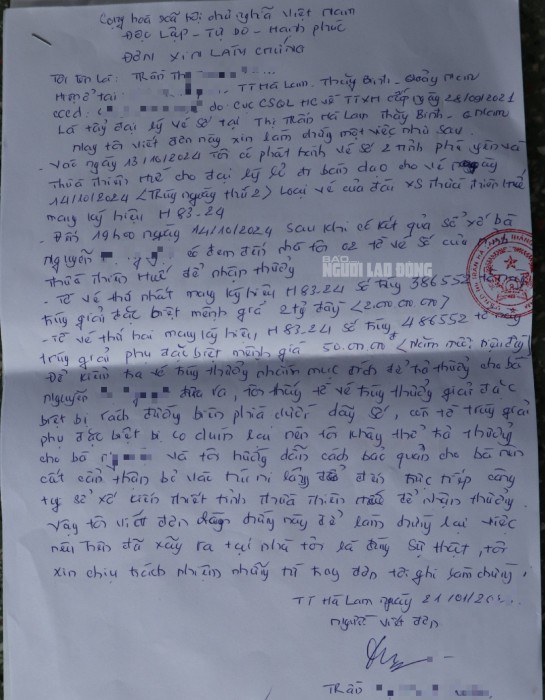 Cộng hoà xã hội chủ nghĩa Việt Nam
Độc Lập - Tự Do - Hạnh Phúc
ĐƠN XIN LÀM CHỨNG
Tôi tên là: Trần Th
Hiện ở tại: TT Hà Lam - Thăng Bình - Quảng Nam
CCCD: do cục CSQL HC về TTXH cấp ngày 28/09/2021
Là đại lý vé số tại Thị Trấn Hà Lam Thăng Bình - Q Nam
Nay tôi viết đơn này xin làm chứng một việc như sau.
- Vào ngày 13/10/2024 Tôi có phát hành vé số 2 tỉnh phú yên và
thừa thiên Huế cho đại lý lẻ đi bán dạo cho vé ngày
14/10/2024 (Trúng ngày thứ 2) Loại vé của đài XS Thừa thiên Huế
mang ký hiệu H 83-24
- Đến 19h00 ngày 14/10/2024 Sau khi có kết quả sổ xố bà
nguyễn có đem đến nhà tôi 02 tờ vé số của
thừa thiên Huế để nhận thưởng
BÁO
NGƯỜI LAO ĐỘNG
- Tờ vé thứ nhất mang ký hiệu H 83.24 số trúng 386552
trúng giải đặc biệt mệnh giá 2 tỷ đồng (2.000.000.000)
- tờ vé thứ hai mang ký hiệu H 83.24 số trúng 486552
trúng giải phụ đặc biệt mệnh giá 50.000.000 (Năm mươi triệu đồng)
Để kiểm tra vé trúng thưởng nhằm mục đích để trả thưởng cho bà
nguyễn đưa ra, tôn thấy tờ vé trúng thưởng giải đặc
biệt bị rách đường biên phía dưới dãy số, còn tờ trúng giải
phụ đặc biệt bị co dúm lại nên tôi không thể trả thưởng
cho bà và tôi hướng dẫn cách bảo quản cho bà nên
cất cẩn thận bỏ vào túi ni lông để đến trực tiếp công
ty sổ xố kiến thiết tỉnh thừa thiên Huế để nhận thưởng.
Vậy tôi viết đơn chứng này để làm chứng lại việc
nêu trên đã xẩy ra tại nhà tôi là đúng sự thật, tôi
xin chịu trách nhiệm những tờ đơn tôi ghi làm chứng.
TT Hà Lam ngày 21/01/20
người viết đơn
Trần